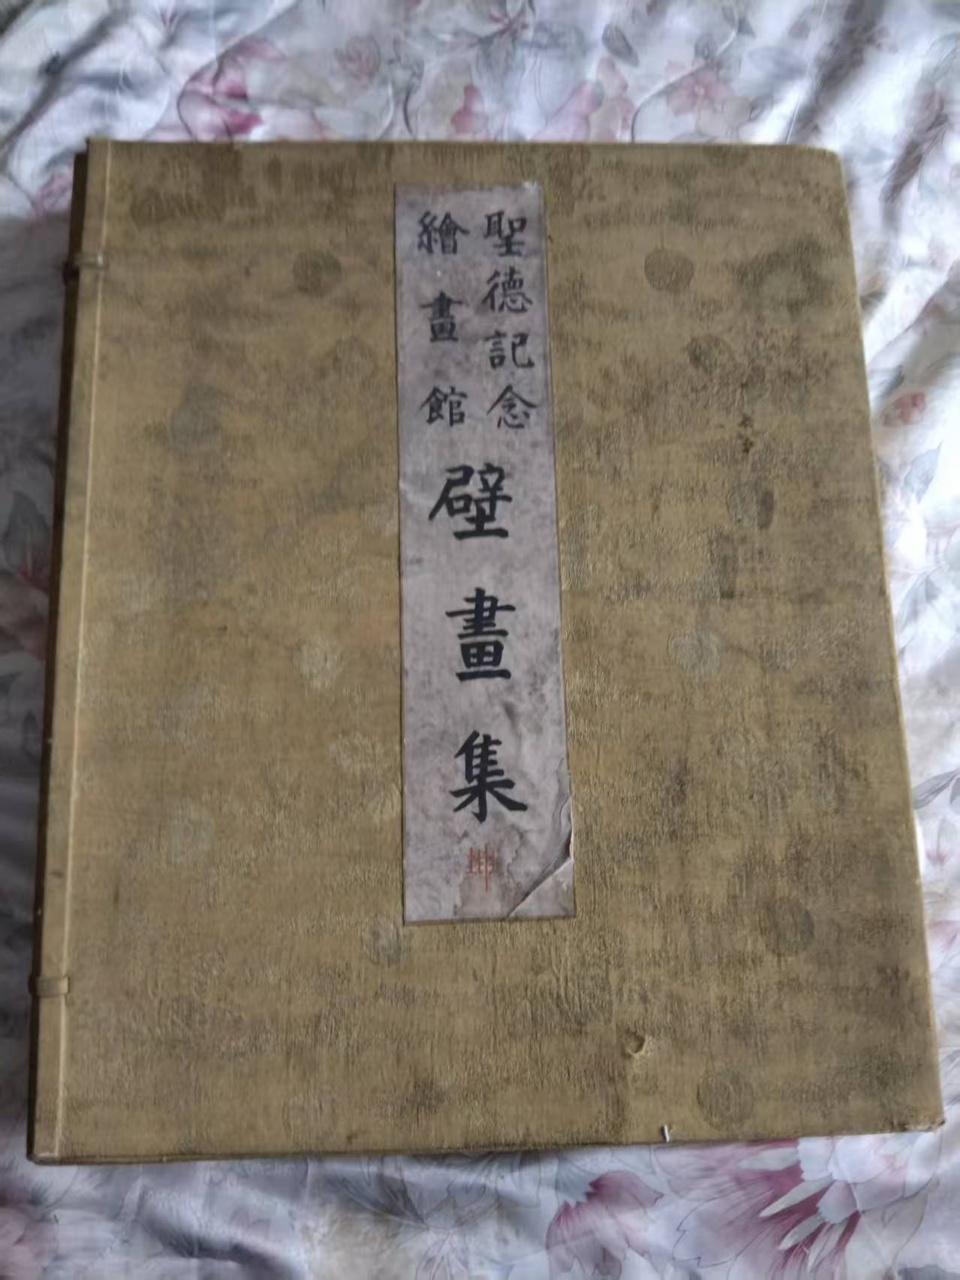 聖德記念
繪畫館
壁畫集
坤